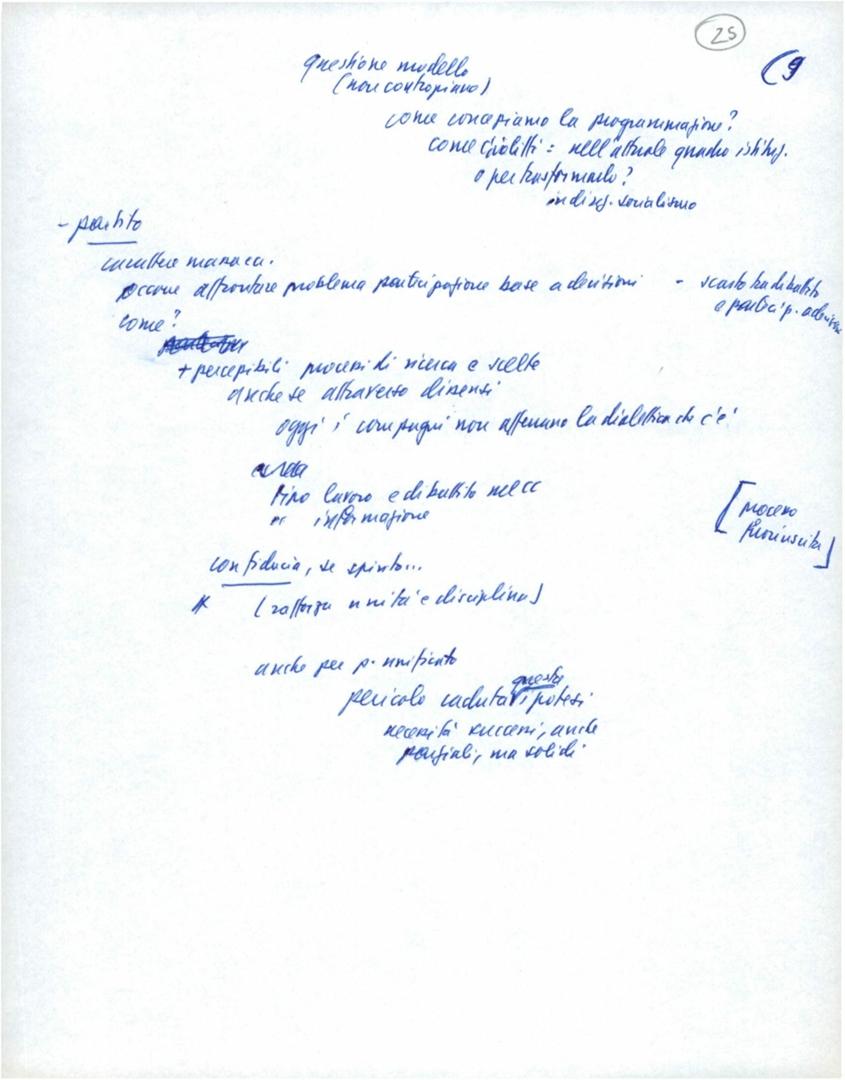 25
(9
questione modello
(non contropiano)
come concepiamo la programmazione?
come Giolitti: nell'attuale quadro istituz.
o per trasformarlo?
in direz. socialismo
- partito
carattere
occorre affrontare problema partecipazione base a decisioni - scarto tra dibattito
e particip. a decisioni
come?
+ percepibili processi di ricerca e scelte
anche se attraverso dissensi
oggi i compagni non afferrano la dialettica che c'è
lavoro e dibattito nel CC
informazione
[processo
Rinascita]
con fiducia, se spinto...
(rafforza unità e disciplina)
anche per p. unificato
pericolo caduta questa ipotesi
necessità successi, anche
parziali, ma solidi